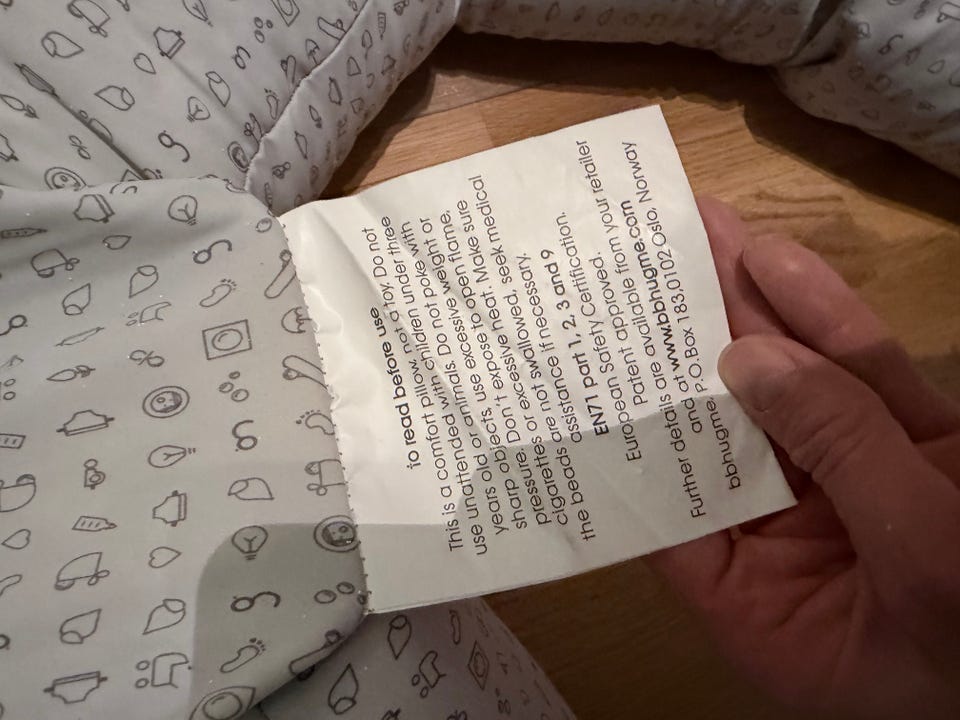 to read before use
This is a comfort pillow, not a toy. Do not
use unattended with children under thee
years old or animals. Do not poke with
sharp objects, use excessive weight or
pressure. Don't expose to open flame,
cigarettes or excessive heat. Make sure
the beads are not swallowed, seek medical
assistance if necessary.
EN71 part 1, 2, 3 and 9
European Safety Certification.
Patent approved.
Further details are available from your retailer
and at www.bbhugme.com
bbhugme, P.O.Box 183,0102 Oslo, Norway